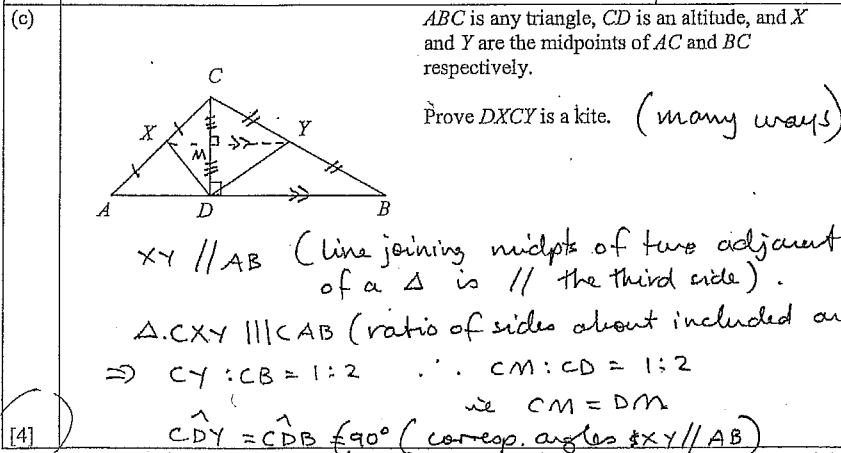 (c)
ABC is any triangle, CD is an altitude, and X
and Y are the midpoints of AC and BC
respectively.
Prove DXCY is a kite. (many ways)
C
X
Y
M
A
D
B
XY // AB (line joining midpts of two adjacent
of a Δ is // the third side).
Δ.CXY ||| CAB (ratio of sides about included an
⇒ CY : CB = 1:2 ∴ CM : CD = 1:2
ie CM = DM
[4]
CD̂Y = CD̂B = 90° (corresp. angles XY // AB)